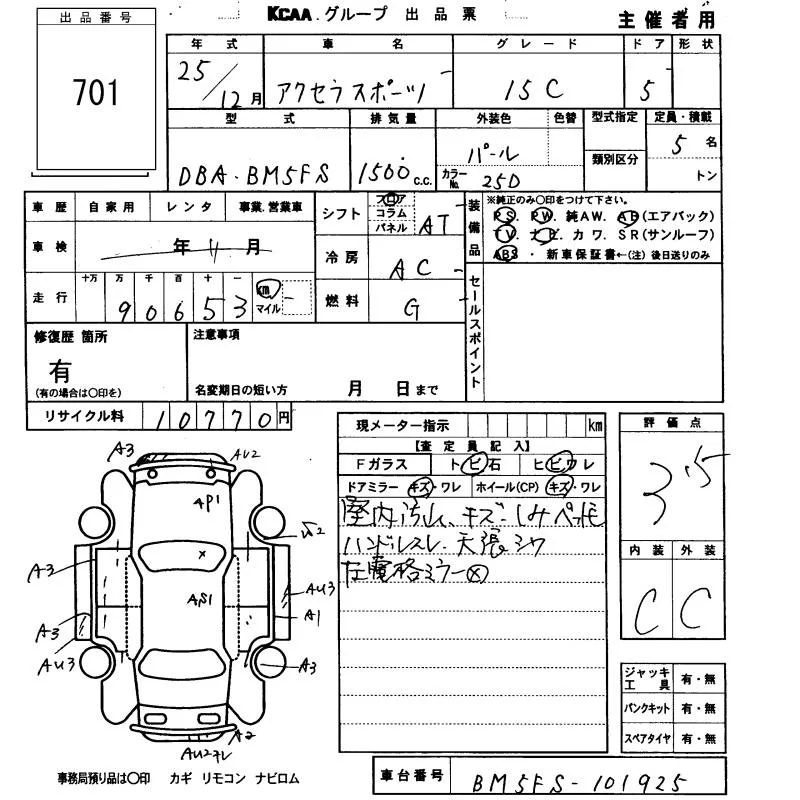 KCAA. グループ 出品票
主催者用
出品番号
701
年式 車名 グレード ドア 形状
25/12月 アクセラスポーツ 15C 5
型式 排気量 外装色 色替 型式指定 定員・積載
DBA-BM5FS 1500c.c. パール 5名
カラーNo. 25D 類別区分 トン
車歴 自家用 レンタ 事業.営業車
シフト フロア コラム パネル AT
装備品 ※純正のみ○印をつけて下さい。
PS. PW. 純AW. AB(エアバック)
TV. ナビ. カワ. SR(サンルーフ)
ABS. 新車保証書←(注)後日送りのみ
車検 年 11月
冷房 AC
走行 十万 万 千 百 十 一
90653 km マイル
燃料 G
セールスポイント
修復歴 箇所 注意事項
有
(有の場合は○印を) 名変期日の短い方 月 日まで
リサイクル料 10770円
現メーター指示 km
【査定員記入】
Fガラス トビ石 ヒビワレ
ドアミラー キズ・ワレ ホイール(CP) キズ・ワレ
室内汚れ、キズ・しみ ペット毛
ハンドルスレ. 天張シワ
格ミラー
評価点
3.5
内装 外装
C C
A3
AU2
AP1
2
×
A3
AP1
AU3
A1
A3
AU3
A3
A2
AU2
ジャッキ 工具 有・無
パンクキット 有・無
スペアタイヤ 有・無
事務局預り品は○印 カギ リモコン ナビロム
車台番号 BM5FS-101925